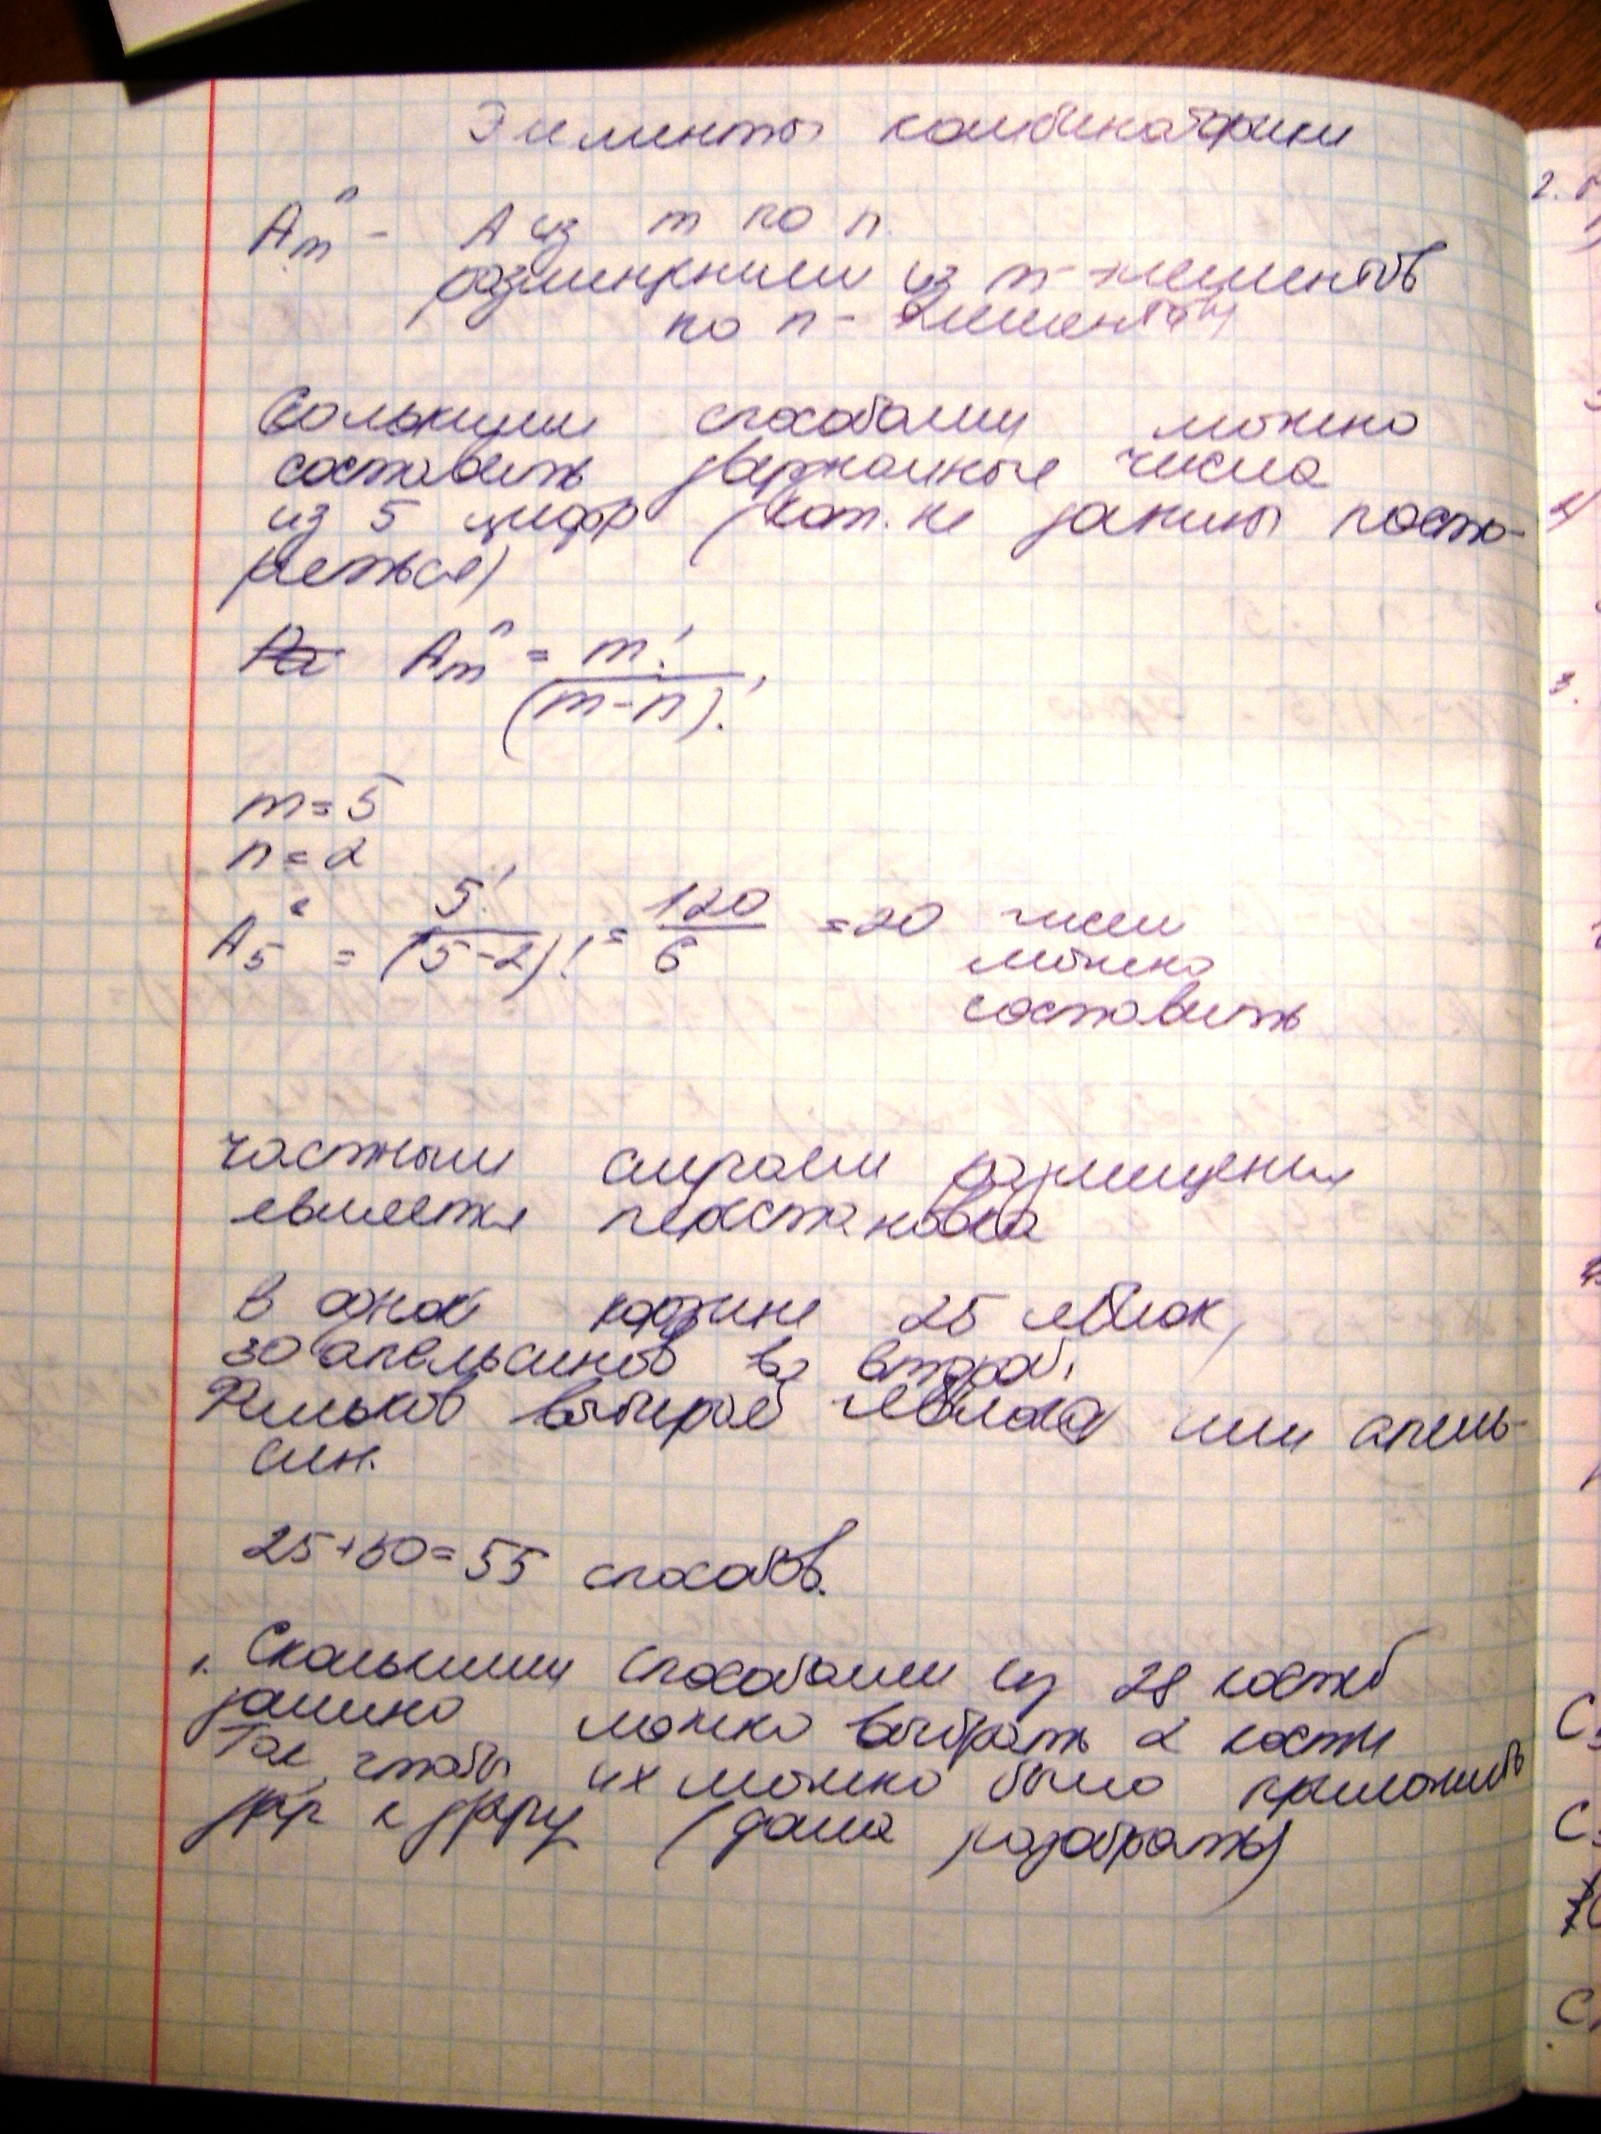 Элементы комбинаторики
Aₘⁿ - A из m по n.
размещением из m-элементов
по n-элементов
Сколькими способами можно
составить двузначные числа
из 5 цифр (кот. не должны повто-
ряться)
Aₘⁿ = m!/(m-n)!
m=5
n=2
A₅² = 5!/(5-2)! = 120/6 = 20 чисел
можно
составить
частным случаем размещения
является перестановка
В одной корзине 25 яблок,
30 апельсинов во второй,
выбирает яблоко или апель-
син.
25+30=55 способов.
1. Сколькими способами из 28 костей
домино можно выбрать 2 кости
Так, чтобы их можно было приложить
друг к другу (дома разобрать)